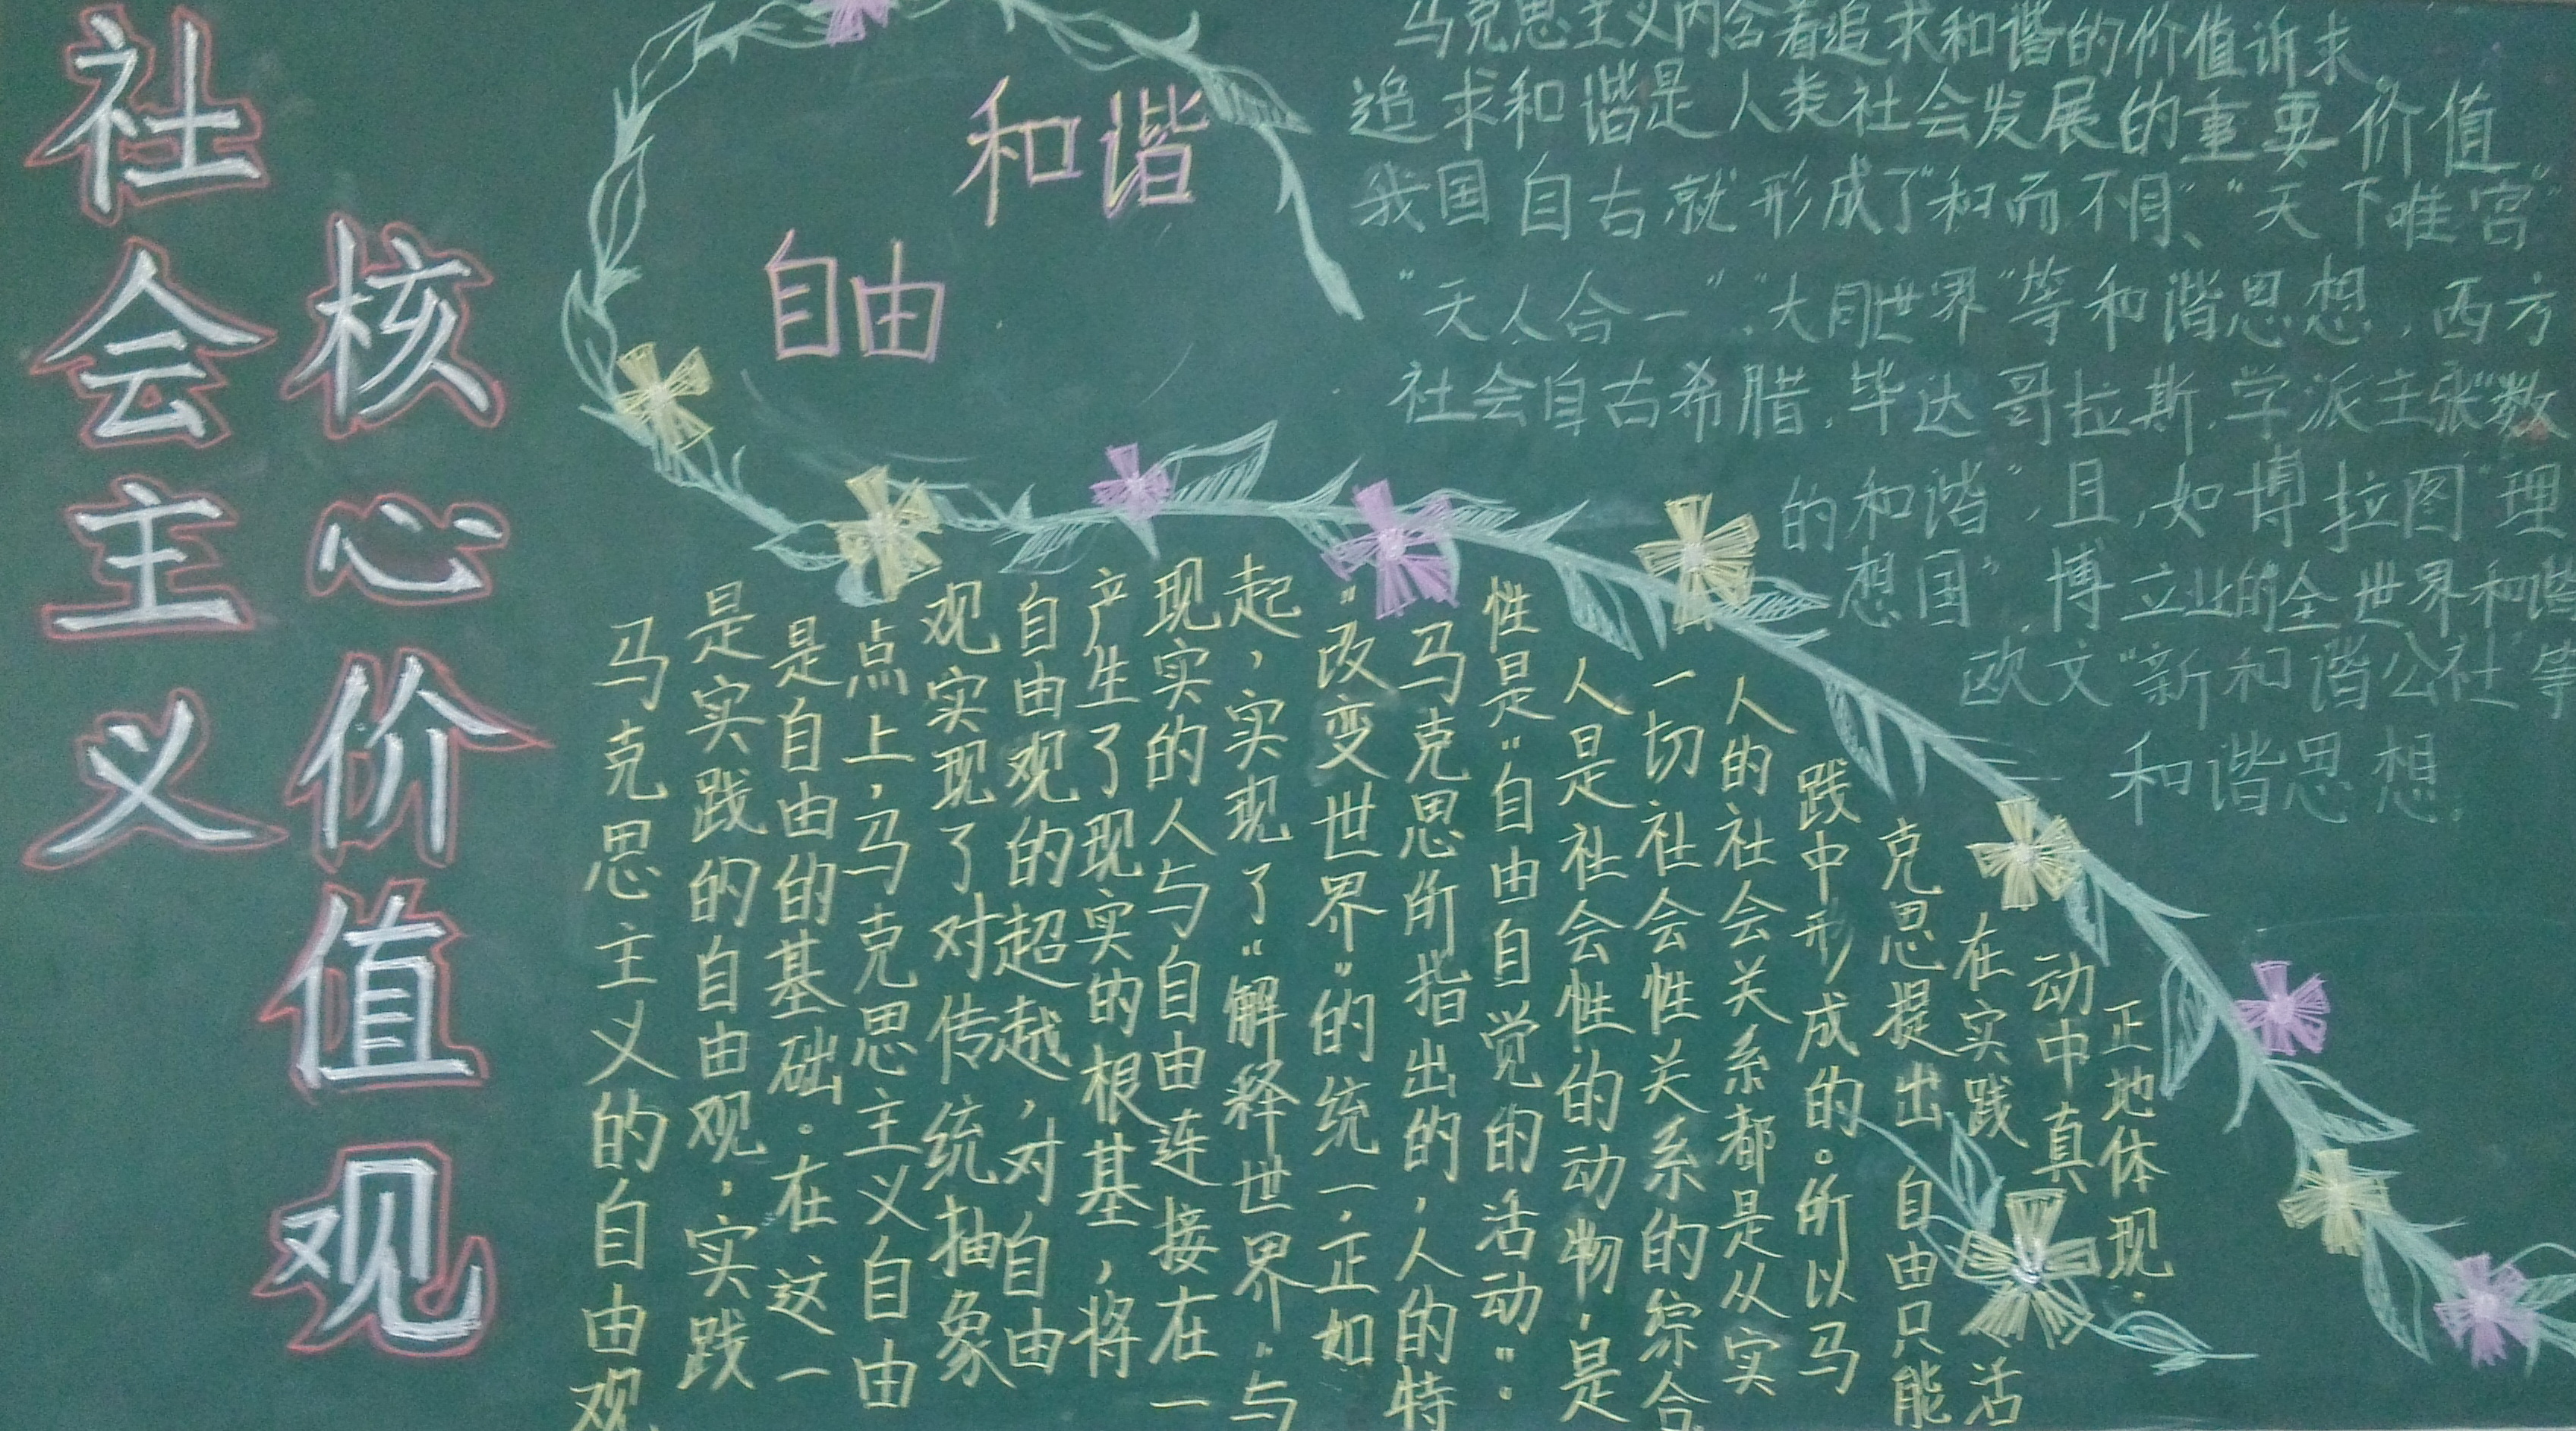 社会主义
核心价值观
和谐
自由
马克思主义内含着追求和谐的价值诉求。
追求和谐是人类社会发展的重要价值
我国自古就形成了“和而不同”、“天下唯宫”
“天人合一”“大同世界”等和谐思想，西方
社会自古希腊，毕达哥拉斯学派主张“数
的和谐”，且，如博拉图“理
想国”博立业的全世界和谐
欧文“新和谐公社”等
和谐思想.
马克思主义的自由观
是实践的自由观，实践
是自由的基础。在这一
点上，马克思主义自由
观实现了对传统抽象
自由观的超越，对自由
产生了现实的根基，将
现实的人与自由连接在一
起，实现了“解释世界”与
“改变世界”的统一，正如
马克思所指出的，人的特
性是“自由自觉的活动”.
人是社会性的动物，是
一切社会性关系的综合
人的社会关系都是从实
践中形成的。所以马
克思提出自由只能
在实践活
动中真
正地体现.